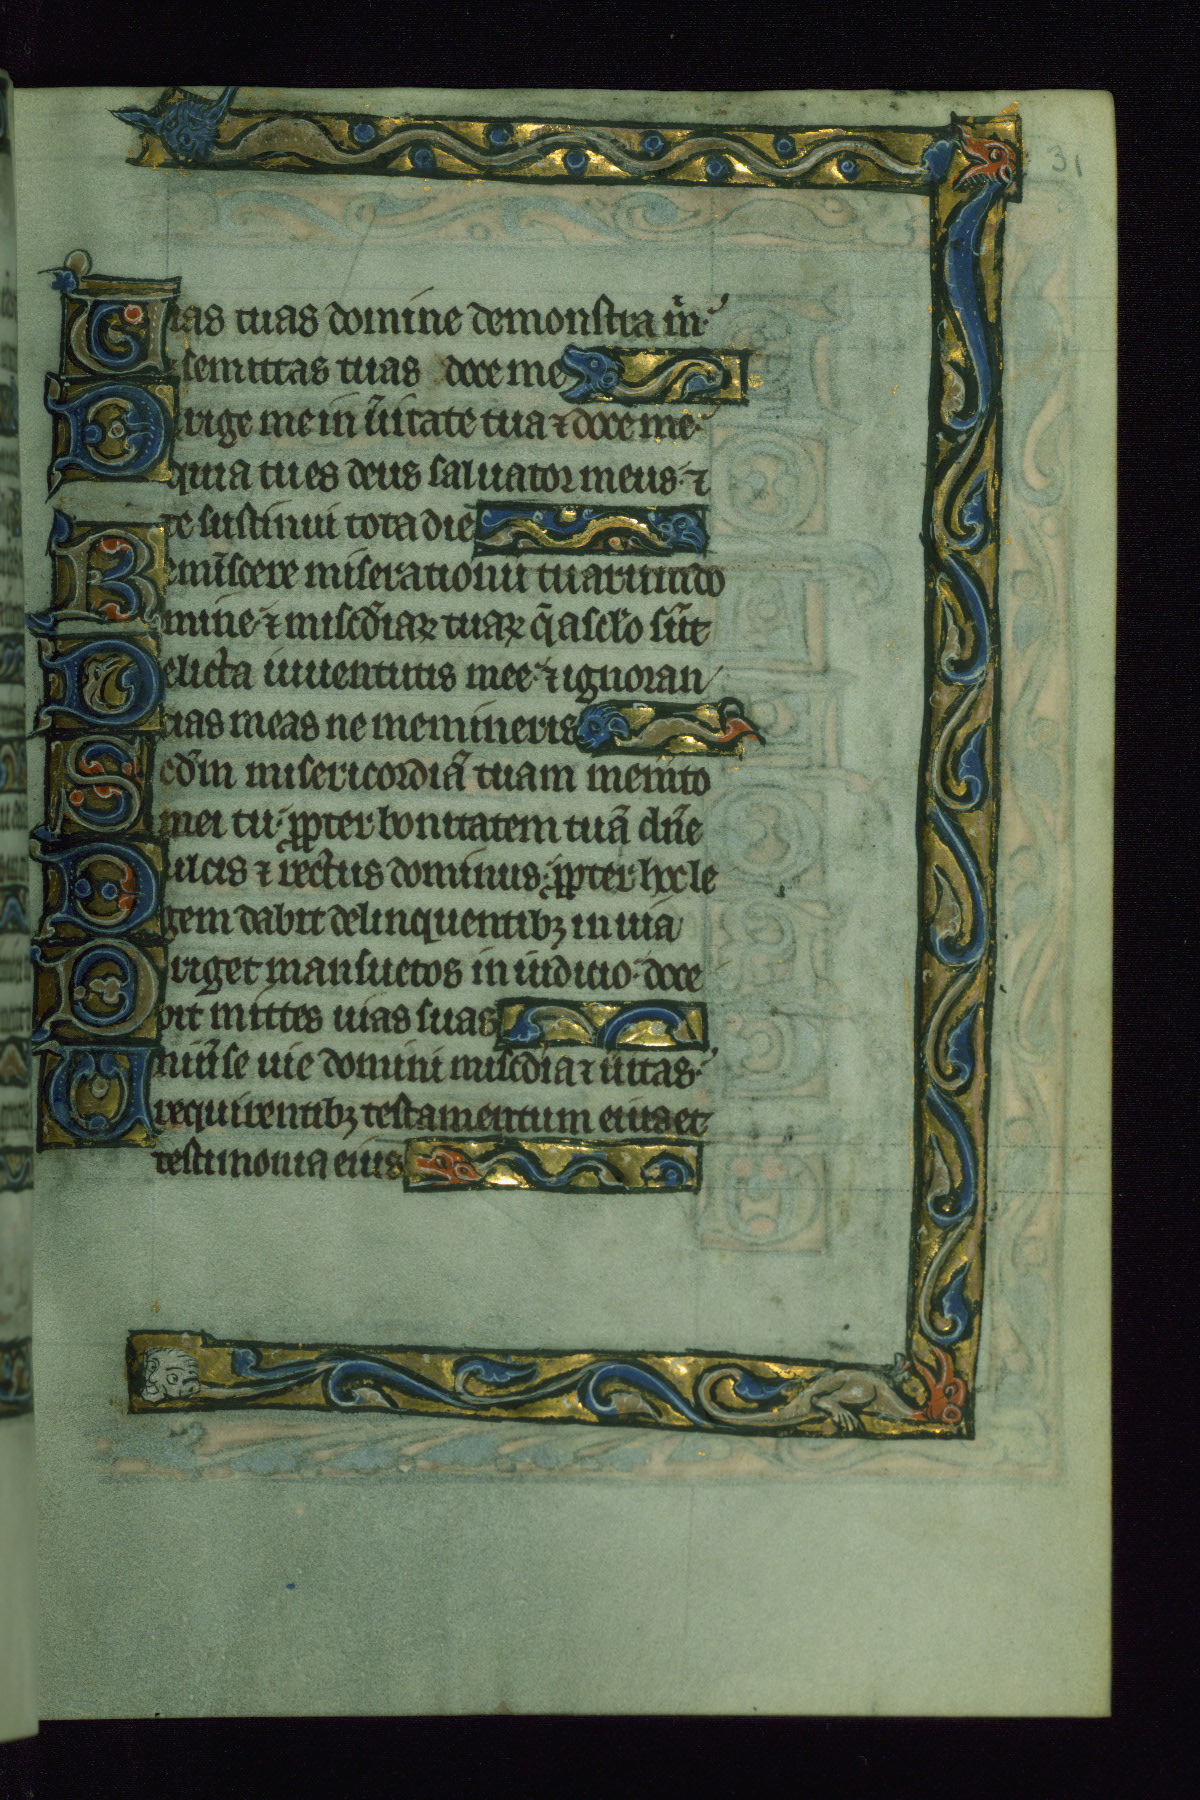 31
Uias tuas domine demonstra m̄
⁊ semittas tuas doce me
Dirige me in ūitate tua ⁊ doce me·
quia tu es deus saluator meus ⁊
te sustinui tota die
Reminīscere miserationū tuarum do
mine· ⁊ misc̄diaꝝ tuaꝝ q̄ a sclo sūt
Delicta iuuentutis mee· ⁊ ignoran
tias meas ne memineris
Scdm̄ misericordiā tuam memto
mei tu· ꝓpter bonitatem tuā dn̄e
Dulcis ⁊ rectus dominus· ꝓpter hoc le
gem dabit delinquentibꝫ in uia
Diriget mansuetos in iuditio· doce
bit mittes uias suas
Uniūse uie domini misc̄dia ⁊ ūitas·
requirentibꝫ testamentum eius et
testimonia eius